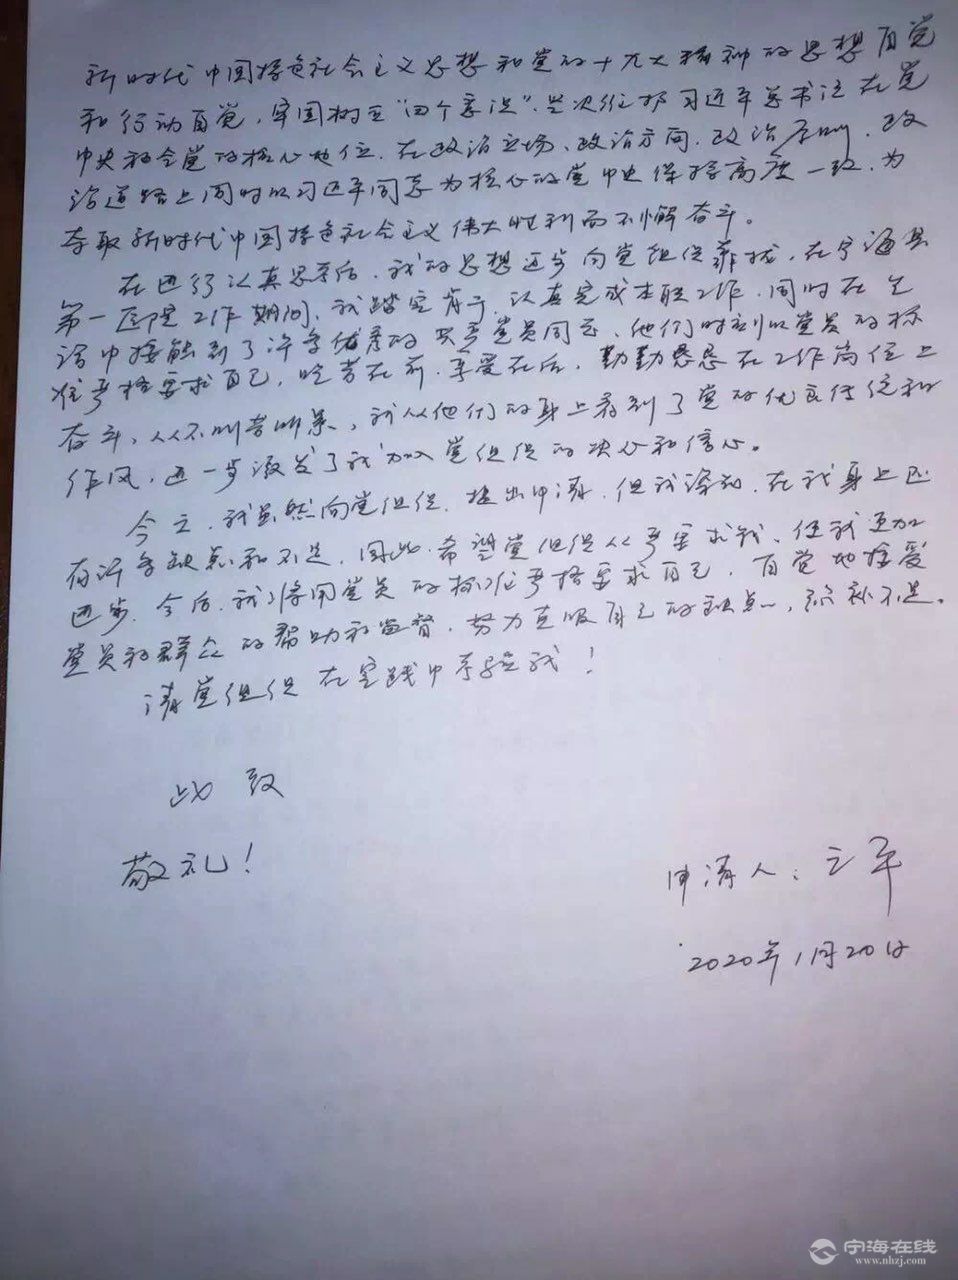 新时代中国特色社会主义思想和党的十九大精神的思想自觉
和行动自觉，牢固树立“四个意识”，坚决维护习近平总书记在党
中央和全党的核心地位，在政治立场、政治方向、政治原则、政
治道路上同时以习近平同志为核心的党中央保持高度一致，为
夺取新时代中国特色社会主义伟大胜利而不懈奋斗。
在进行认真思考后，我的思想逐步向党组织靠拢，在宁海县
第一医院工作期间，我踏实肯干，认真完成本职工作，同时在生
活中接触到了许多优秀的共产党员同志，他们时刻以党员的标
准严格要求自己，吃苦在前，享受在后，勤勤恳恳在工作岗位上
奋斗，从不叫苦叫累，我从他们的身上看到了党的优良传统和
作风，进一步激发了我加入党组织的决心和信心。
今天，我虽然向党组织提出申请，但我深知，在我身上还
有许多缺点和不足，因此，希望党组织从严要求我，使我更加
进步。今后，我将用党员的标准严格要求自己，自觉地接受
党员和群众的帮助和监督，努力克服自己的缺点，弥补不足。
请党组织在实践中考验我！
此致
敬礼！
申请人：
2020年1月20日
宁海在线
www.nhzj.com